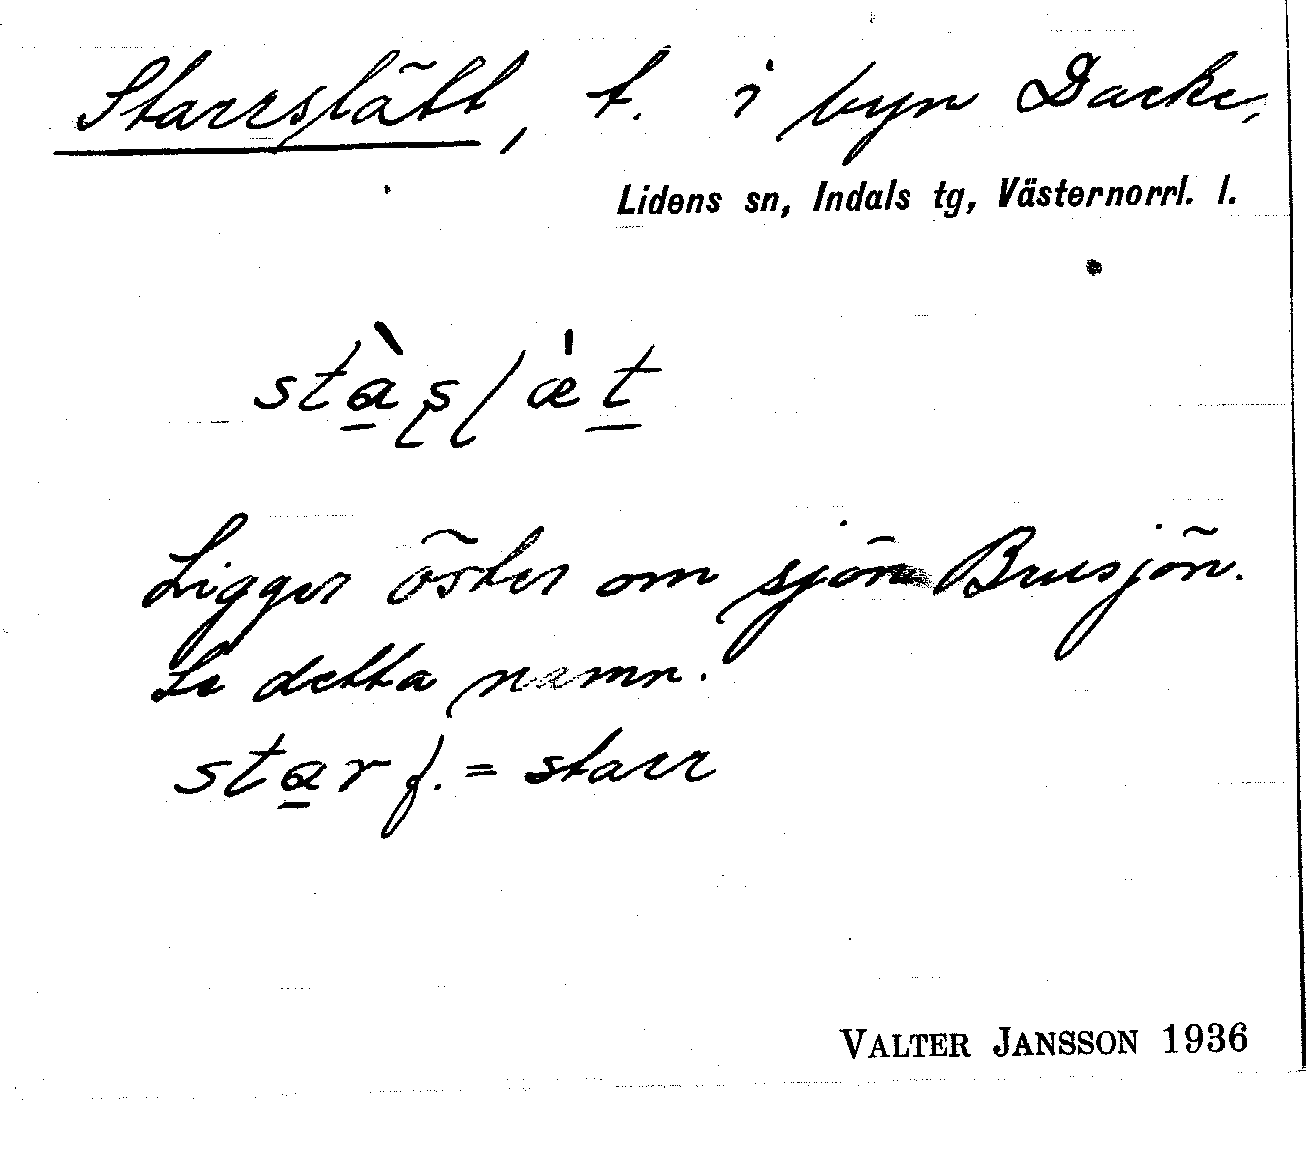 Starrslått, t. i byn Backe,
Lidens sn, Indals tg, Västernorrl. l.
Ligger öster om sjön Brusjön.
Se detta namn.
star f. = starr
VALTER JANSSON 1936